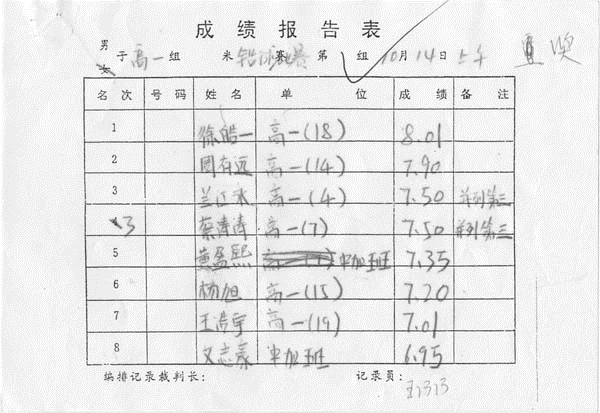 成绩报告表
男
子 高一 组 米 铅球 赛 第 组 10月14日 上午
名次 号码 姓名 单位 成绩 备注
1 徐皓一 高一(18) 8.01
2 周存远 高一(14) 7.90
3 兰江水 高一(4) 7.50 并列第三
3 蔡涛涛 高一(7) 7.50 并列第三
5 黄盈熙 中加班 7.35
6 杨旭 高一(15) 7.20
7 王浩宇 高一(19) 7.01
8 文志豪 中加班 6.95
编排记录裁判长: 记录员: